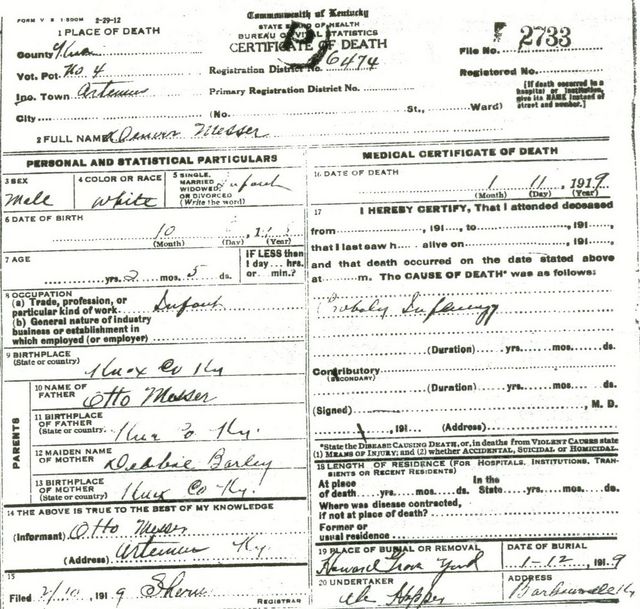 FORM V S 1-500M 2-29-12
Commonwealth of Kentucky
STATE BOARD OF HEALTH
BUREAU OF VITAL STATISTICS
CERTIFICATE OF DEATH
1 PLACE OF DEATH
County Knox
Vot. Pct. No 4
Inc. Town Artemus
City
Registration District No. 6474
Primary Registration District No.
(No. St., Ward)
File No. 2733
Registered No.
[If death occurred in a
hospital or institution,
give its NAME instead of
street and number.]
2 FULL NAME Denver Messer
PERSONAL AND STATISTICAL PARTICULARS
3 SEX
Male
4 COLOR OR RACE
White
5 SINGLE,
MARRIED
WIDOWED
OR DIVORCED
(Write the word)
Infant
6 DATE OF BIRTH
10
(Month) (Day) (Year)
7 AGE
yrs. 2 mos. 5 ds.
IF LESS than
1 day... hrs.
or min.?
8 OCCUPATION
(a) Trade, profession, or
particular kind of work Infant
(b) General nature of industry
business or establishment in
which employed (or employer)
9 BIRTHPLACE
(State or country)
Knox Co Ky
PARENTS
10 NAME OF
FATHER
Otto Messer
11 BIRTHPLACE
OF FATHER
(State or country.
Knox Co Ky.
12 MAIDEN NAME
OF MOTHER
Debbie Barley
13 BIRTHPLACE
OF MOTHER
(State or country)
Knox Co Ky.
14 THE ABOVE IS TRUE TO THE BEST OF MY KNOWLEDGE
(Informant) Otto Messer
(Address) Artemus Ky.
15
Filed 2/10, 1919
REGISTRAR
MEDICAL CERTIFICATE OF DEATH
16 DATE OF DEATH
1 11, 1919
(Month) (Day) (Year)
17 I HEREBY CERTIFY, That I attended deceased
from , 191 , to , 191 ,
that I last saw h alive on , 191 ,
and that death occurred on the date stated above
at m. The CAUSE OF DEATH* was as follows:
Infancy
(Duration) yrs. mos. ds.
Contributory
(SECONDARY)
(Duration) yrs. mos. ds.
(Signed) , M. D.
, 191 (Address)
*State the DISEASE CAUSING DEATH, or, in deaths from VIOLENT CAUSES state
(1) MEANS OF INJURY; and (2) whether ACCIDENTAL, SUICIDAL OR HOMICIDAL
18 LENGTH OF RESIDENCE (FOR HOSPITALS, INSTITUTIONS, TRAN-
SIENTS OR RECENT RESIDENTS)
At place
of death yrs. mos. ds.
In the
State yrs. mos. ds.
Where was disease contracted,
if not at place of death?
Former or
usual residence
19 PLACE OF BURIAL OR REMOVAL
Howard Grove Yard
DATE OF BURIAL
1-12, 1919
20 UNDERTAKER
Hopper
ADDRESS
Barbourville Ky